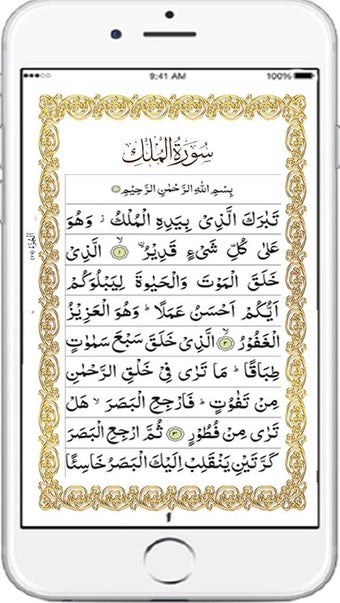 9:41 AM 100%
سُوْرَةُ الْمُلْكِ
بِسْمِ اللهِ الرَّحْمٰنِ الرَّحِيْمِ
تَبٰرَكَ الَّذِیْ بِیَدِهِ الْمُلْكُ ؗ وَهُوَ
عَلٰی كُلِّ شَیْءٍ قَدِیْرُۙ ۝۱ الَّذِیْ
خَلَقَ الْمَوْتَ وَالْحَیٰوةَ لِیَبْلُوَكُمْ
اَیُّكُمْ اَحْسَنُ عَمَلًا ؕ وَهُوَ الْعَزِیْزُ
الْغَفُوْرُۙ ۝۲ الَّذِیْ خَلَقَ سَبْعَ سَمٰوٰتٍ
طِبَاقًا ؕ مَا تَرٰی فِیْ خَلْقِ الرَّحْمٰنِ
مِنْ تَفٰوُتٍ ؕ فَارْجِعِ الْبَصَرَ ۙ هَلْ
تَرٰی مِنْ فُطُوْرٍ ۝۳ ثُمَّ ارْجِعِ الْبَصَرَ
كَرَّتَیْنِ یَنْقَلِبْ اِلَیْكَ الْبَصَرُ خَاسِئًا